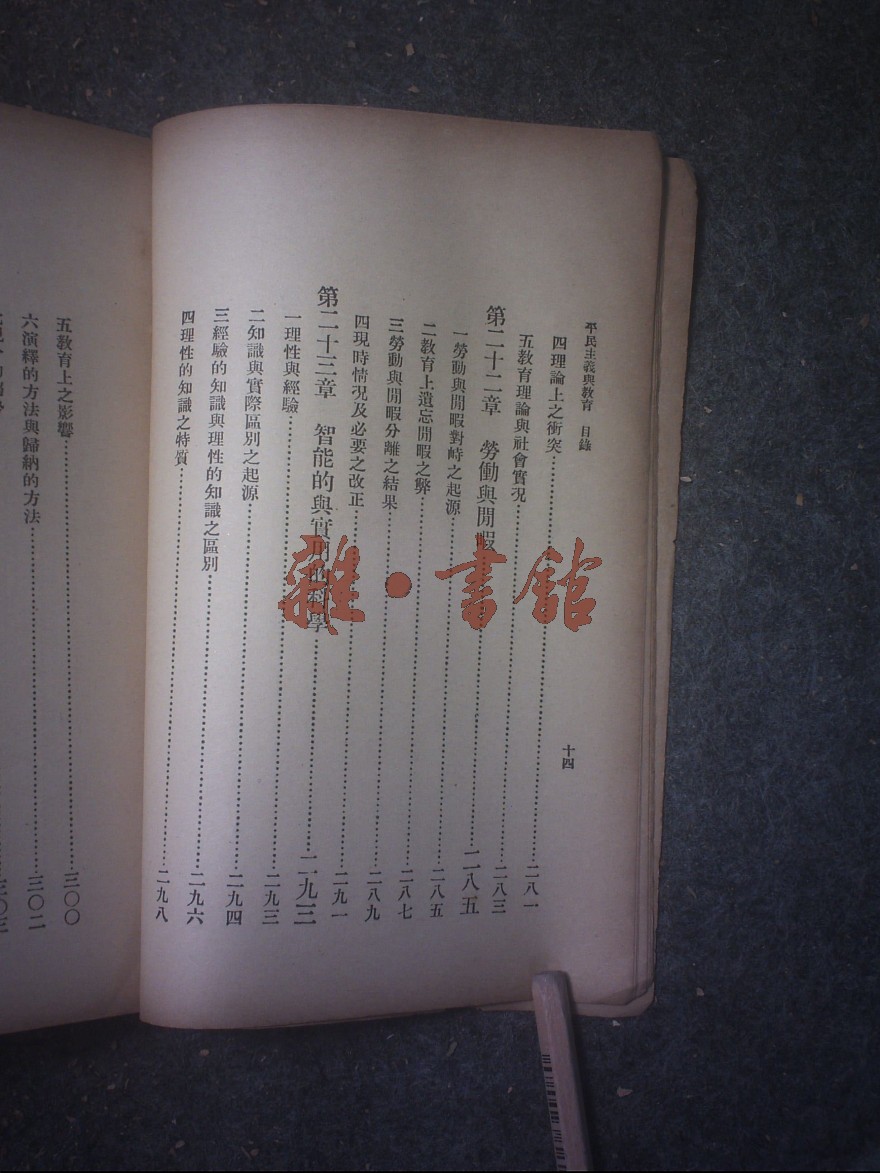 平民主義與教育 目錄
十四
四理論上之衝突……二八一
五教育理論與社會實況……二八三
第二十二章 勞働與閒暇……二八五
一勞動與閒暇對峙之起源……二八五
二教育上遺忘閒暇之弊……二八七
三勞動與閒暇分離之結果……二八九
四現時情況及必要之改正……二九一
第二十三章 智能的與實用的科學……二九三
一理性與經驗……二九三
二知識與實際區別之起源……二九四
三經驗的知識與理性的知識之區別……二九六
四理性的知識之特質……二九八
五教育上之影響……三〇〇
六演釋的方法與歸納的方法……三〇二
三〇三
雜·書館